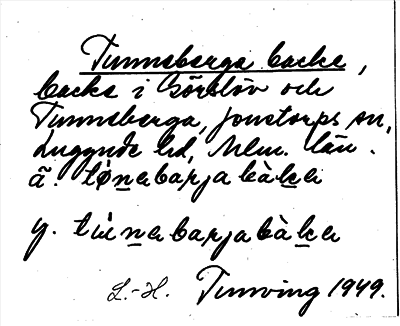 Tunneberga backe,
backe i Görslöv och
Tunneberga, Jonstorps sn,
Luggude hd, Mlm. län.
ä. tønabarjabàka
y. túnabarjabàka
L.-H. Tunving 1949.